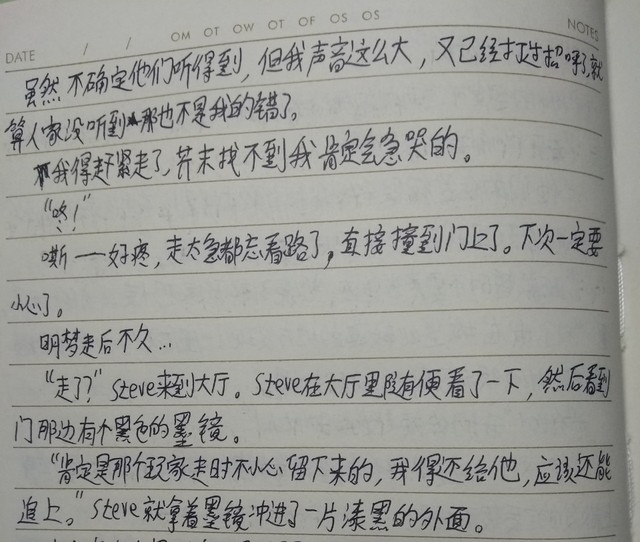 OM OT OW OT OF OS OS
DATE / / NOTES
虽然不确定他们听得到，但我声音这么大，又已经打过招呼了，就
算人家没听到，那也不是我的错了。
我得赶紧走了，芥末找不到我肯定会急哭的。
“咚！”
嘶——好疼，走太急都忘看路了，直接撞到门上了。下次一定要
小心了。
明梦走后不久…
“走了？”Steve来到大厅。Steve在大厅里随便看了一下，然后看到
门那边有个黑色的墨镜。
“肯定是那个玩家走时不小心留下来的，我得还给他，应该还能
追上。”Steve就拿着墨镜冲进了一片漆黑的外面。